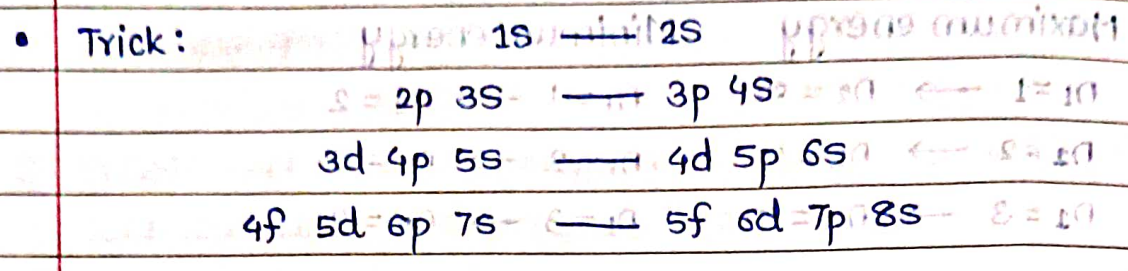 • Trick: 1S — 2S
2p 3S — 3p 4S
3d 4p 5S — 4d 5p 6S
4f 5d 6p 7S — 5f 6d 7p 8S